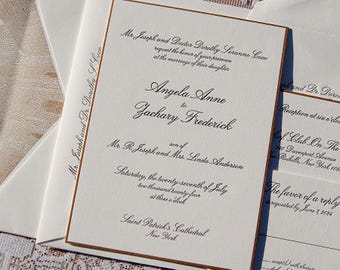 Mr. Joseph and Doctor Dorothy Seranne Coco
request the honor of your presence
at the marriage of their daughter
Angela Anne
to
Zachary Frederick
son of
Mr. R Joseph and Mrs. Linda Anderson
Saturday, the twenty-seventh of July
two thousand twenty-four
Saint Patrick's Cathedral
New York
Mr. Joseph and Dr. Dorothy S Coco
and Dr. Dorothy
Reception at six o'clock
of Club On The
Davenport Avenue
Rochelle, New York
The favor of a reply
is requested by June 7, 2024